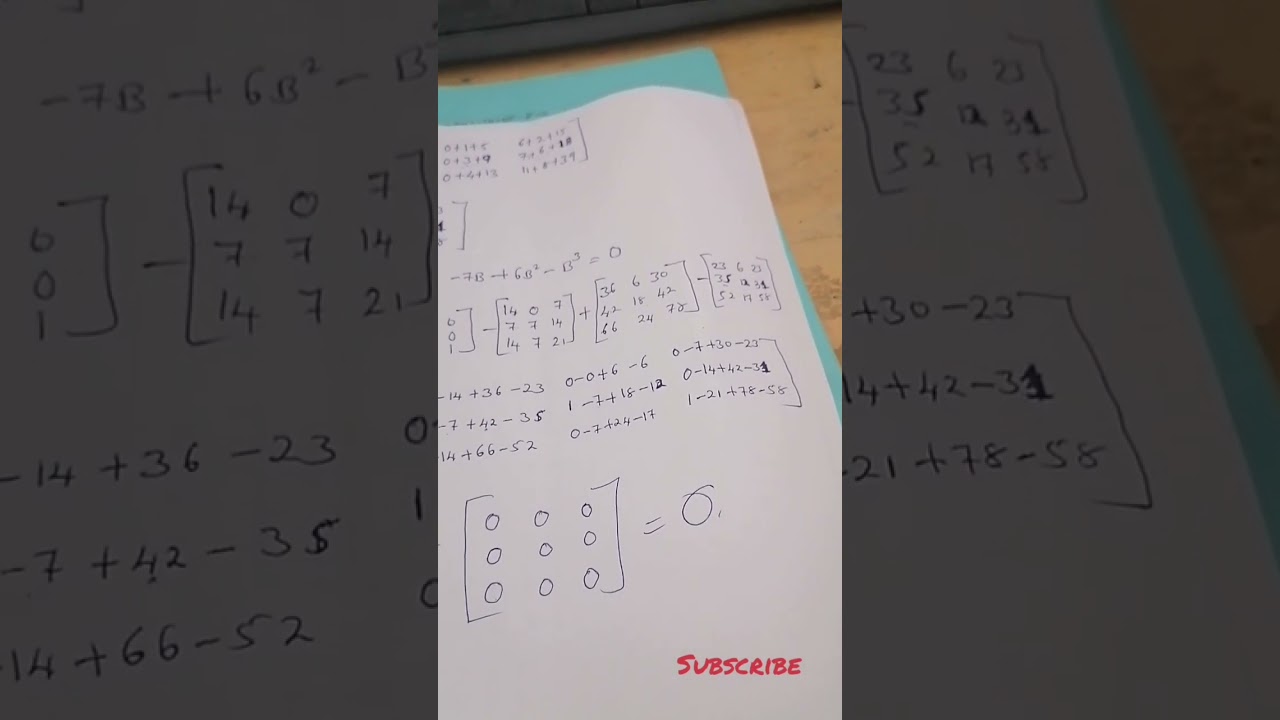 0+1+5 6+2+15
0+3+9 7+6+18
0+4+13 11+8+39
-7B+6B²-B³=0
0 14 0 7 36 6 30 23 6 23
0 - 7 7 14 + 42 18 42 - 35 12 31
1 14 7 21 66 24 78 52 17 58
-14+36-23 0-0+6-6 0-7+30-23
-7+42-35 1-7+18-12 0-14+42-31
14+66-52 0-7+24-17 1-21+78-58
0 0 0
0 0 0 = 0.
0 0 0
SUBSCRIBE